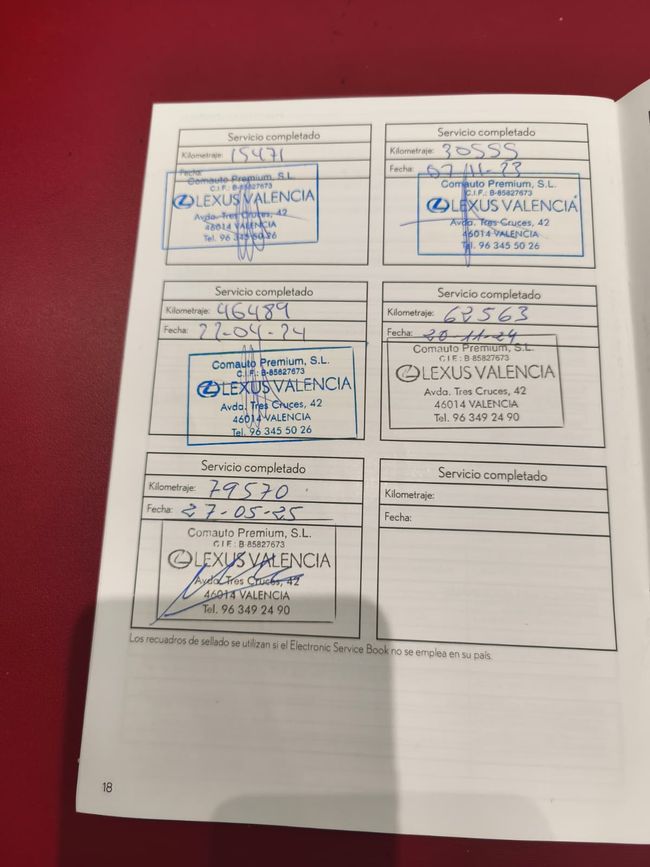 Servicio completado
Kilometraje: 15471
Fecha:
Comauto Premium, S.L.
C.I.F.: B-85827673
LEXUS VALENCIA
Avda. Tres Cruces, 42
46014 VALENCIA
Tel. 96 345 50 26
Servicio completado
Kilometraje: 30555
Fecha: 07-11-23
Comauto Premium, S.L.
C.I.F.: B-85827673
LEXUS VALENCIA
Avda. Tres Cruces, 42
46014 VALENCIA
Tel. 96 345 50 26
Servicio completado
Kilometraje: 46489
Fecha: 22-04-24
Comauto Premium, S.L.
C.I.F.: B-85827673
LEXUS VALENCIA
Avda. Tres Cruces, 42
46014 VALENCIA
Tel. 96 345 50 26
Servicio completado
Kilometraje: 62563
Fecha: 20-11-24
Comauto Premium, S.L.
C.I.F.: B-85827673
LEXUS VALENCIA
Avda. Tres Cruces, 42
46014 VALENCIA
Tel. 96 349 24 90
Servicio completado
Kilometraje: 79570
Fecha: 27-05-25
Comauto Premium, S.L.
C.I.F.: B-85827673
LEXUS VALENCIA
Avda. Tres Cruces, 42
46014 VALENCIA
Tel. 96 349 24 90
Servicio completado
Kilometraje:
Fecha:
Los recuadros de sellado se utilizan si el Electronic Service Book no se emplea en su país.
18